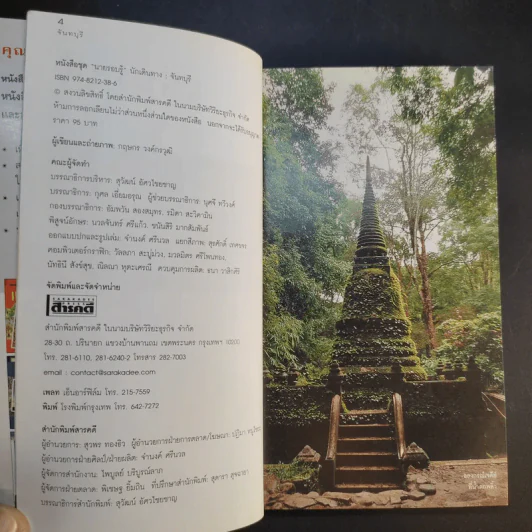 4
จันทบุรี
คุณ
หนังสือชุด "นายรอบรู้" นักเดินทาง : จันทบุรี
ISBN 974-8212-38-6
© สงวนลิขสิทธิ์ โดยสำนักพิมพ์สารคดี ในนามบริษัทวิริยะธุรกิจ จำกัด
ห้ามการลอกเลียนไม่ว่าส่วนหนึ่งส่วนใดของหนังสือ นอกจากจะได้รับ
ราคา 95 บาท
ผู้เขียนและถ่ายภาพ: กฤษกร วงค์กรวุฒิ
คณะผู้จัดทำ
บรรณาธิการบริหาร: สุวัฒน์ อัศวไชยชาญ
บรรณาธิการ: กุศล เอี่ยมอรุณ ผู้ช่วยบรรณาธิการ: นุศจี ทวีวงศ์
กองบรรณาธิการ: อัมพวัน
พิสูจน์อักษร: นวลจันทร์ ศรีแก้ว
ออกแบบปกและรูปเล่ม: จำนงค์ ศรีนวล แยกสีภาพ: สุรศักดิ์ เทศขจร
คอมพิวเตอร์กราฟิก: วัลลภา สะบู่ม่วง, นวลมิตร ศรีไพบูลย์
ควบคุมการผลิต: ธนา วาสิกศิริ
จัดพิมพ์และจัดจำหน่าย
สารคดี
สำนักพิมพ์สารคดี ในนามบริษัทวิริยะธุรกิจ จำกัด
28-30 ถ. ปรินายก แขวงบ้านพานถม เขตพระนคร กรุงเทพฯ 10200
โทร. 281-6110, 281-6240-2 โทรสาร 282-7003
email : contact@sarakadee.com
เพลท เอ็นอาร์ฟิล์ม โทร. 215-7559
พิมพ์ โรงพิมพ์กรุงเทพ โทร. 642-7272
สำนักพิมพ์สารคดี
ผู้อำนวยการ: สุวพร ทองธิว ผู้อำนวยการฝ่ายการตลาด/โฆษณา:
ผู้อำนวยการฝ่ายศิลป์/ฝ่ายผลิต: จำนงค์ ศรีนวล
ผู้จัดการสำนักงาน: ไพบูลย์
ผู้จัดการฝ่ายตลาด: ที่ปรึกษาสำนักพิมพ์: สุดารา สุจฉายา
บรรณาธิการสำนักพิมพ์: สุวัฒน์ อัศวไชยชาญ